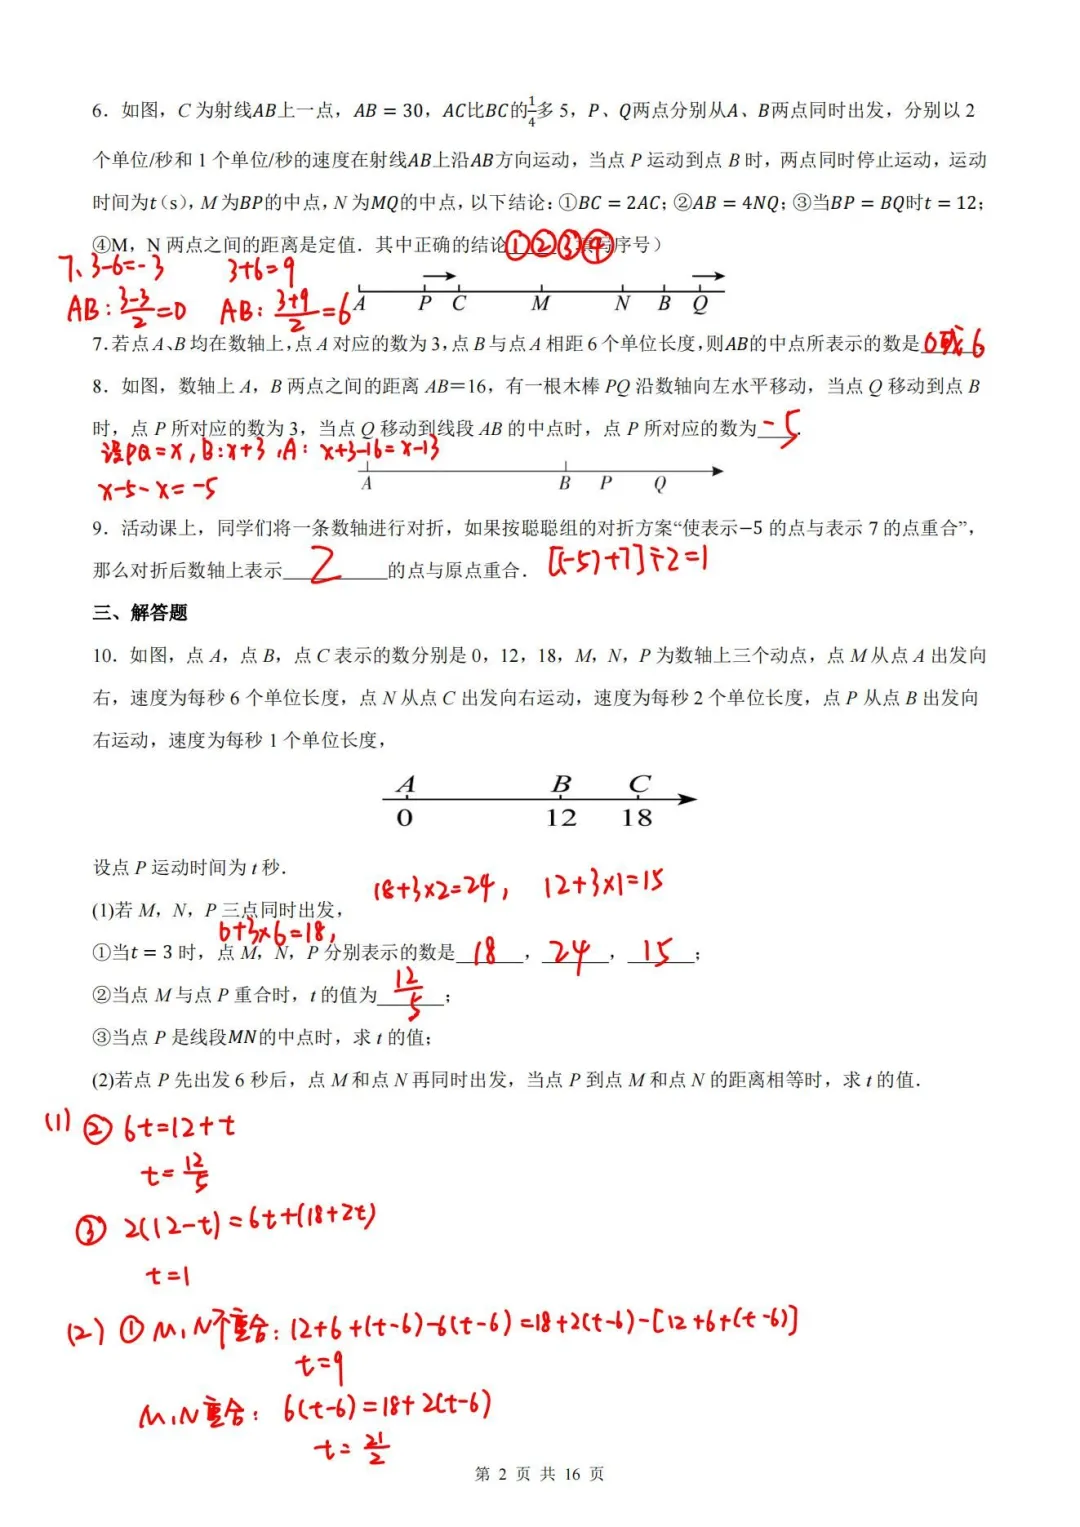 6．如图，C 为射线AB上一点，AB = 30，AC比BC的1/4多 5，P、Q两点分别从A、B两点同时出发，分别以 2
个单位/秒和 1 个单位/秒的速度在射线AB上沿AB方向运动，当点 P 运动到点 B 时，两点同时停止运动，运动
时间为t（s），M 为BP的中点，N 为MQ的中点，以下结论：①BC = 2AC；②AB = 4NQ；③当BP = BQ时t = 12；
④M，N 两点之间的距离是定值．其中正确的结论①②③④写序号）
7、3-6=-3 3+6=9
AB: (3-3)/2=0 AB: (3+9)/2=6
A P C M N B Q
7.若点 A、B 均在数轴上,点 A 对应的数为 3,点 B 与点 A 相距 6 个单位长度,则AB的中点所表示的数是0或6
8．如图，数轴上 A，B 两点之间的距离 AB＝16，有一根木棒 PQ 沿数轴向左水平移动，当点 Q 移动到点 B
时，点 P 所对应的数为 3，当点 Q 移动到线段 AB 的中点时，点 P 所对应的数为-5．
设PQ=x, B:x+3, A: x+3-16=x-13
x-5-x=-5
A B P Q
9．活动课上，同学们将一条数轴进行对折，如果按聪聪组的对折方案“使表示−5 的点与表示 7 的点重合”，
那么对折后数轴上表示2的点与原点重合．[(-5)+7]÷2=1
三、解答题
10．如图，点 A，点 B，点 C 表示的数分别是 0，12，18，M，N，P 为数轴上三个动点，点 M 从点 A 出发向
右，速度为每秒 6 个单位长度，点 N 从点 C 出发向右运动，速度为每秒 2 个单位长度，点 P 从点 B 出发向
右运动，速度为每秒 1 个单位长度，
A B C
0 12 18
设点 P 运动时间为 t 秒．
18+3×2=24, 12+3×1=15
(1)若 M，N，P 三点同时出发，
6+3×6=18,
①当t = 3 时，点 M，N，P 分别表示的数是18，24，15；
②当点 M 与点 P 重合时，t 的值为12/5；
③当点 P 是线段MN的中点时，求 t 的值；
(2)若点 P 先出发 6 秒后，点 M 和点 N 再同时出发，当点 P 到点 M 和点 N 的距离相等时，求 t 的值．
(1) ② 6t=12+t
t=12/5
③ 2(12-t)=6t+(18+2t)
t=1
(2) ① M,N不重合: 12+6+(t-6)-6(t-6)=18+2(t-6)-[12+6+(t-6)]
t=9
M,N重合: 6(t-6)=18+2(t-6)
t=21/2
第 2 页 共 16 页